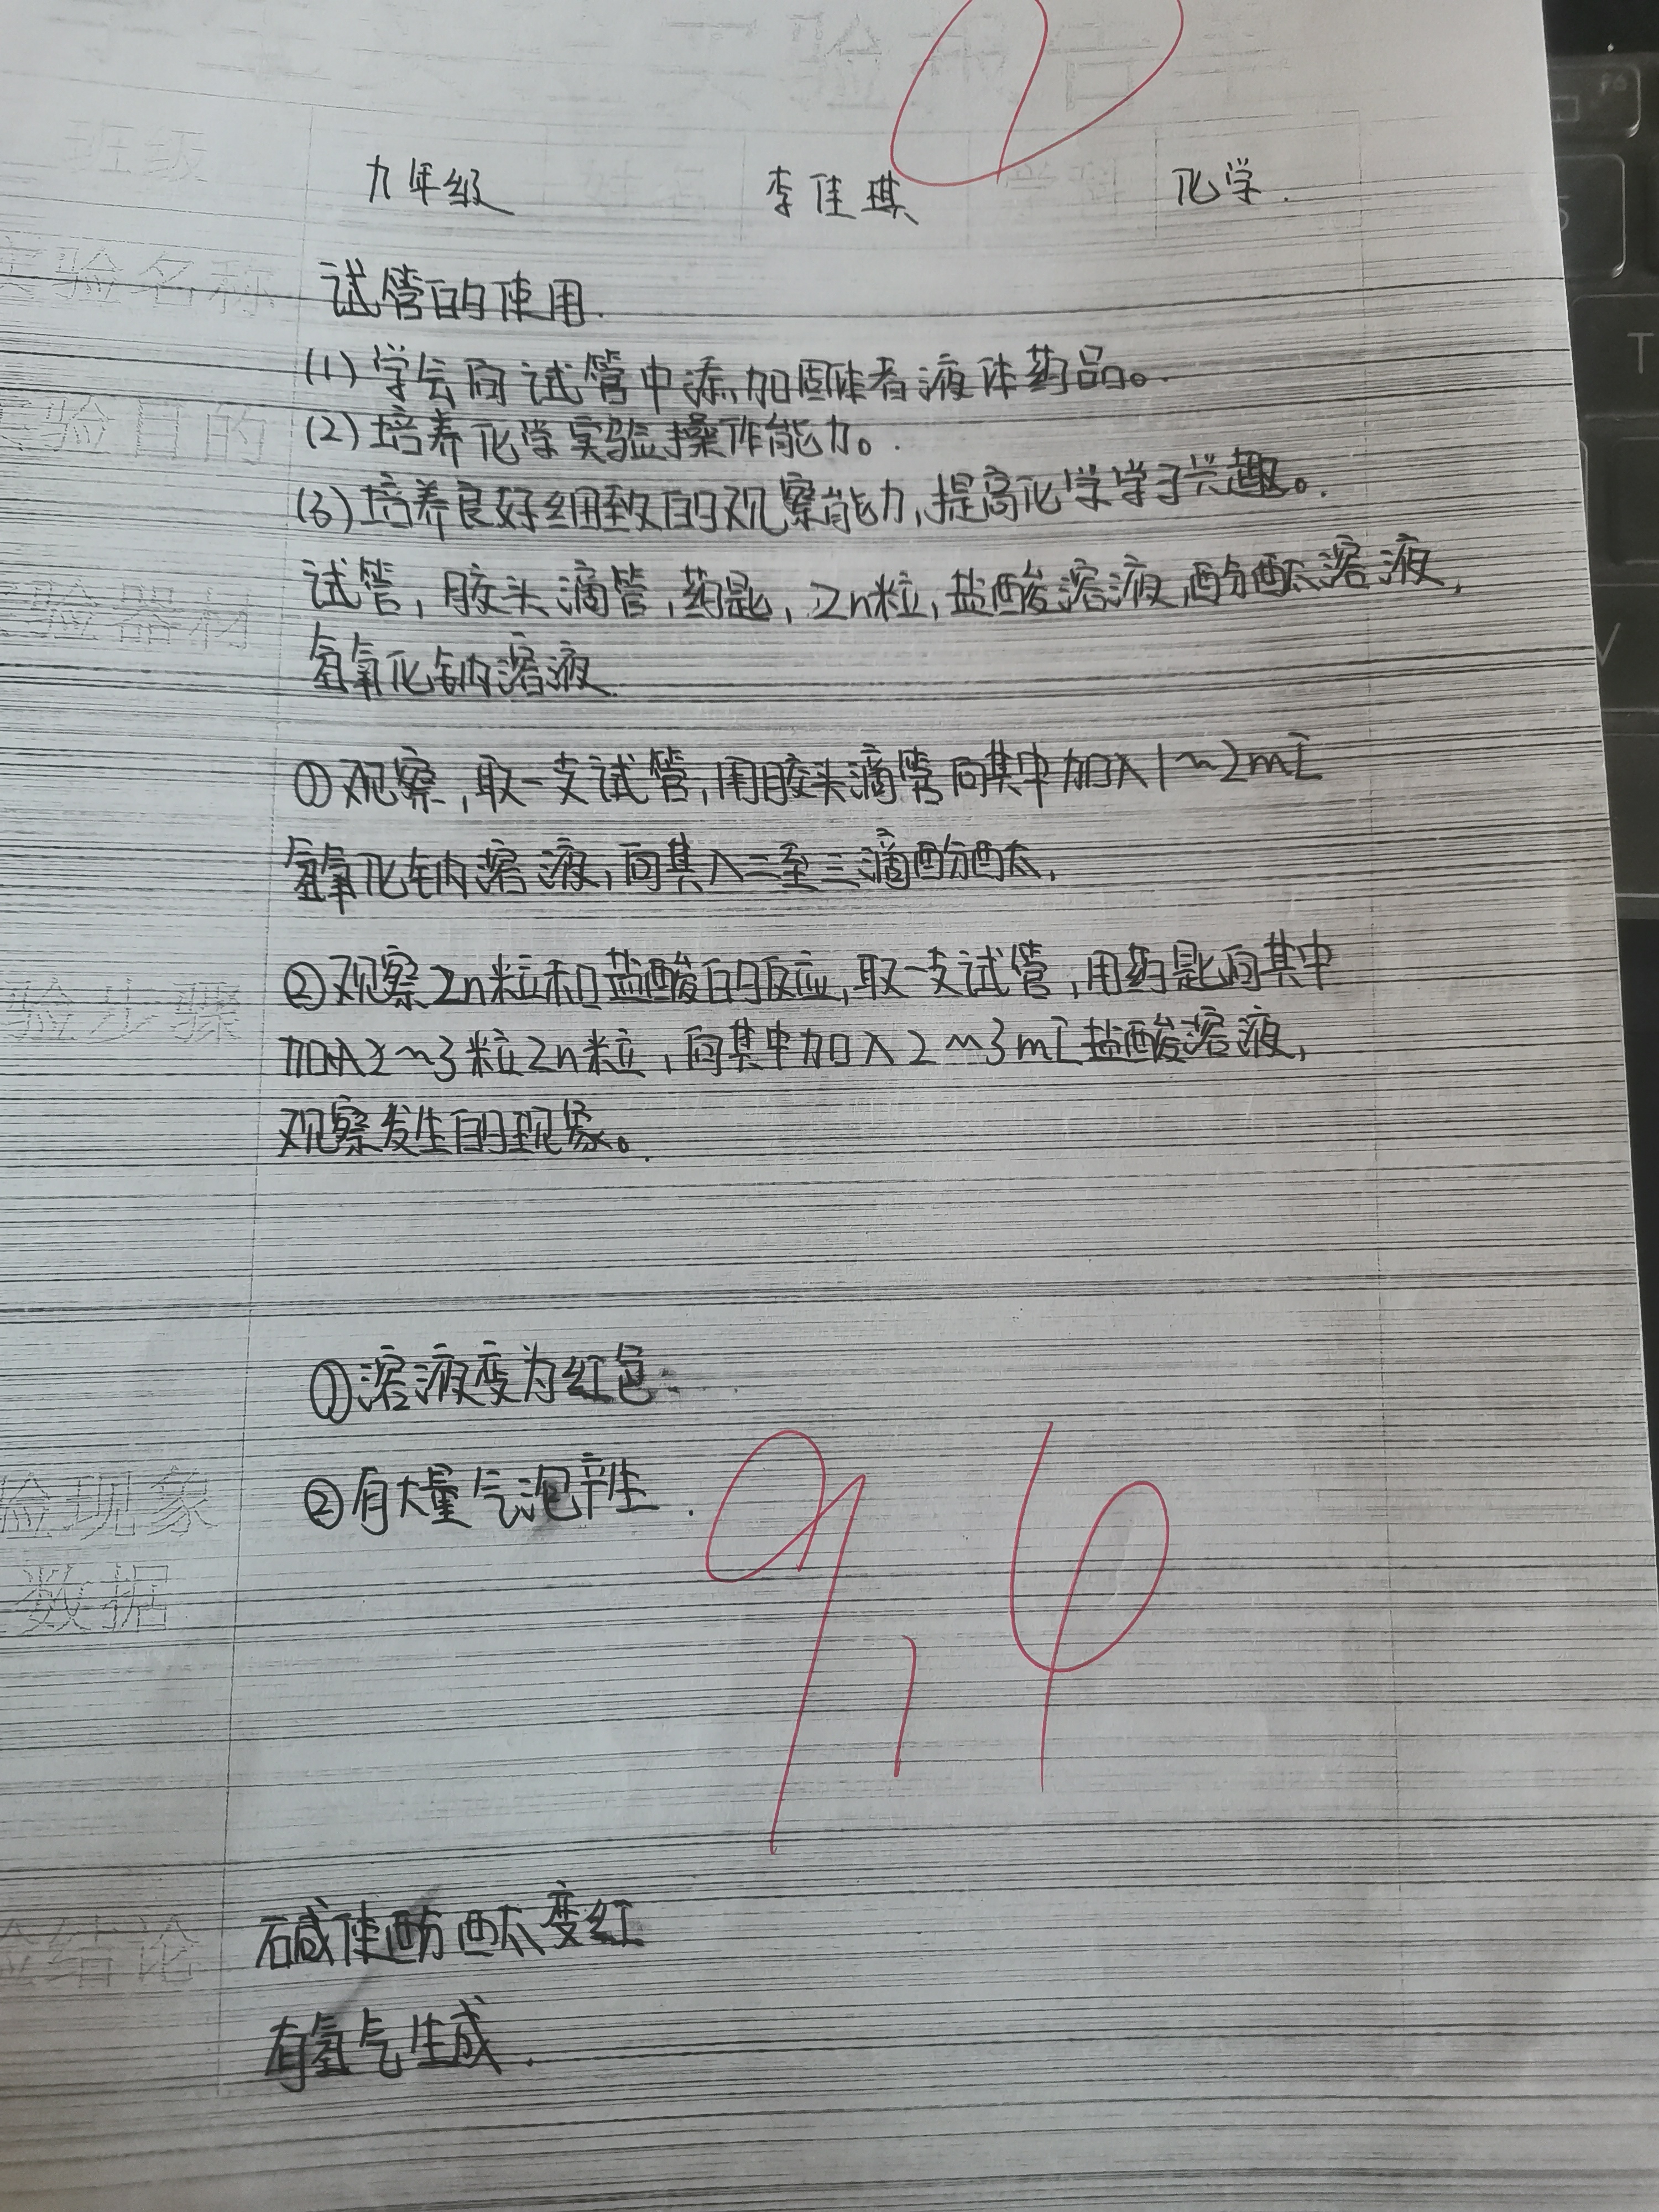 班级 九年级 李佳琪 化学.
实验名称 试管的使用.
(1)学会向试管中添加固体者液体药品。
实验目的 (2)培养化学实验操作能力。
(3)培养良好细致的观察能力,提高化学学习兴趣。
验器材 试管,胶头滴管,药匙,Zn粒,盐酸溶液,酚酞溶液,
氢氧化钠溶液.
①观察,取一支试管,用胶头滴管向其中加入1~2mL
氢氧化钠溶液,向其入二至三滴酚酞,
验步骤 ②观察Zn粒和盐酸的反应,取一支试管,用药匙向其中
加入2~3粒Zn粒,向其中加入2~3mL盐酸溶液,
观察发生的现象。
①溶液变为红色
验现象 ②有大量气泡产生.
数据
9,16
验结论 碱使酚酞变红
有氢气生成.